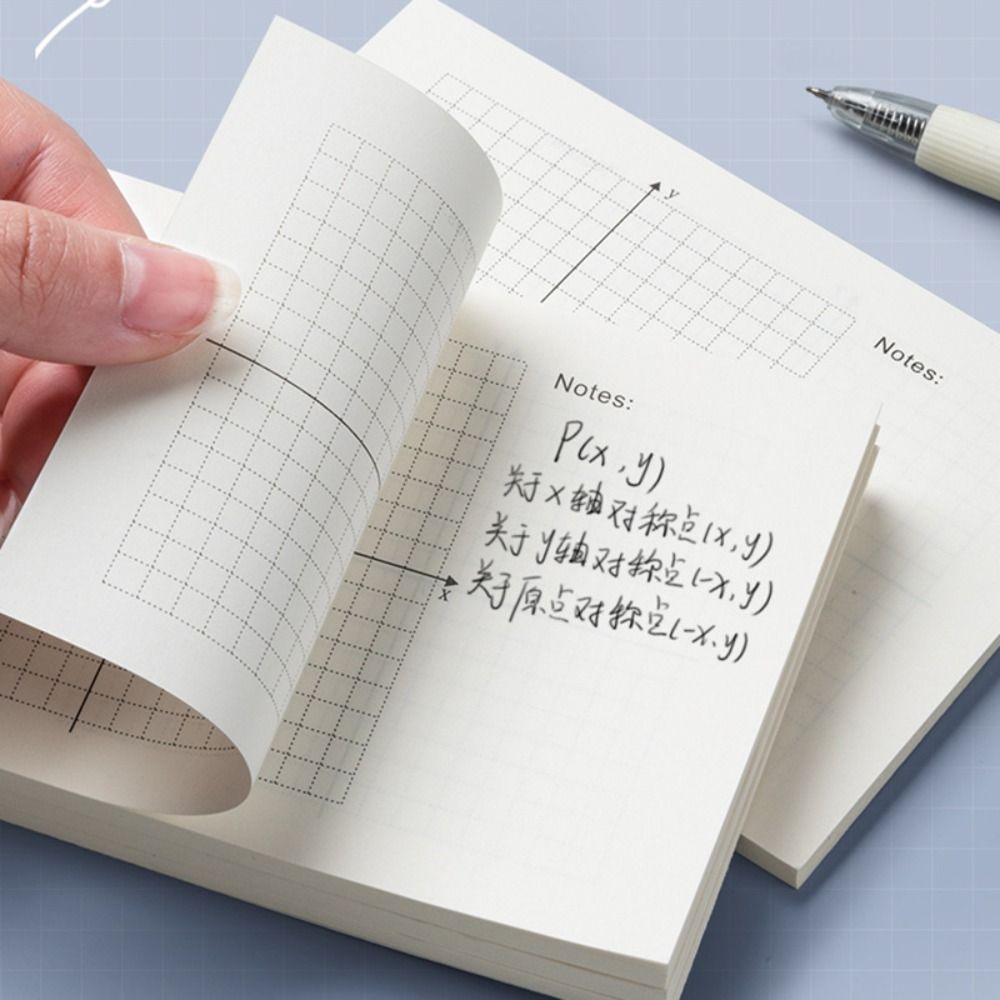 y
Notes:
Notes:
P(x,y)
关于x轴对称点(x,y)
关于y轴对称点(-x,y)
关于原点对称点(-x.y)
x